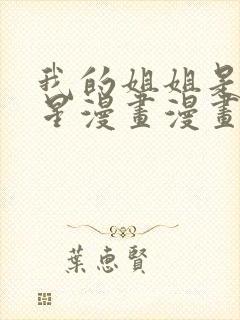 我的姐姐是
星漫畫漫畫
葉惠賢